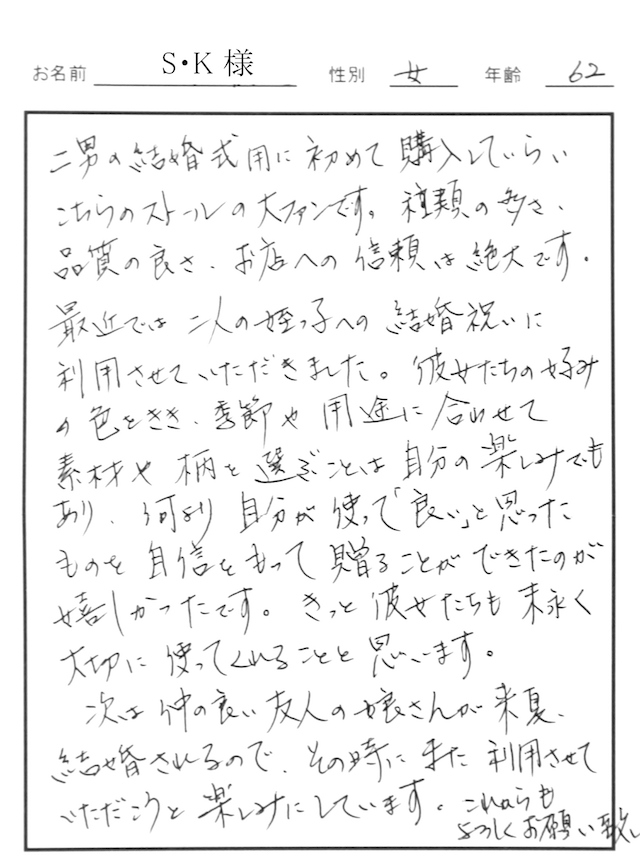 お名前 S・K 様 性別 女 年齢 62
二男の結婚式用に初めて購入していらい
こちらのストールの大ファンです。種類の多さ、
品質の良さ、お店への信頼は絶大です。
最近では二人の姪っ子への結婚祝いに
利用させていただきました。彼女たちの好み
の色をきき、季節や用途に合わせて
素材や柄を選ぶことは自分の楽しみでも
あり、何より自分が使って「良い」と思った
ものを自信をもって贈ることができたのが
嬉しかったです。きっと彼女たちも末永く
大切に使ってくれることと思います。
次は仲の良い友人の娘さんが来夏、
結婚されるので、その時にまた利用させて
いただこうと楽しみにしています。これからも
よろしくお願い致し